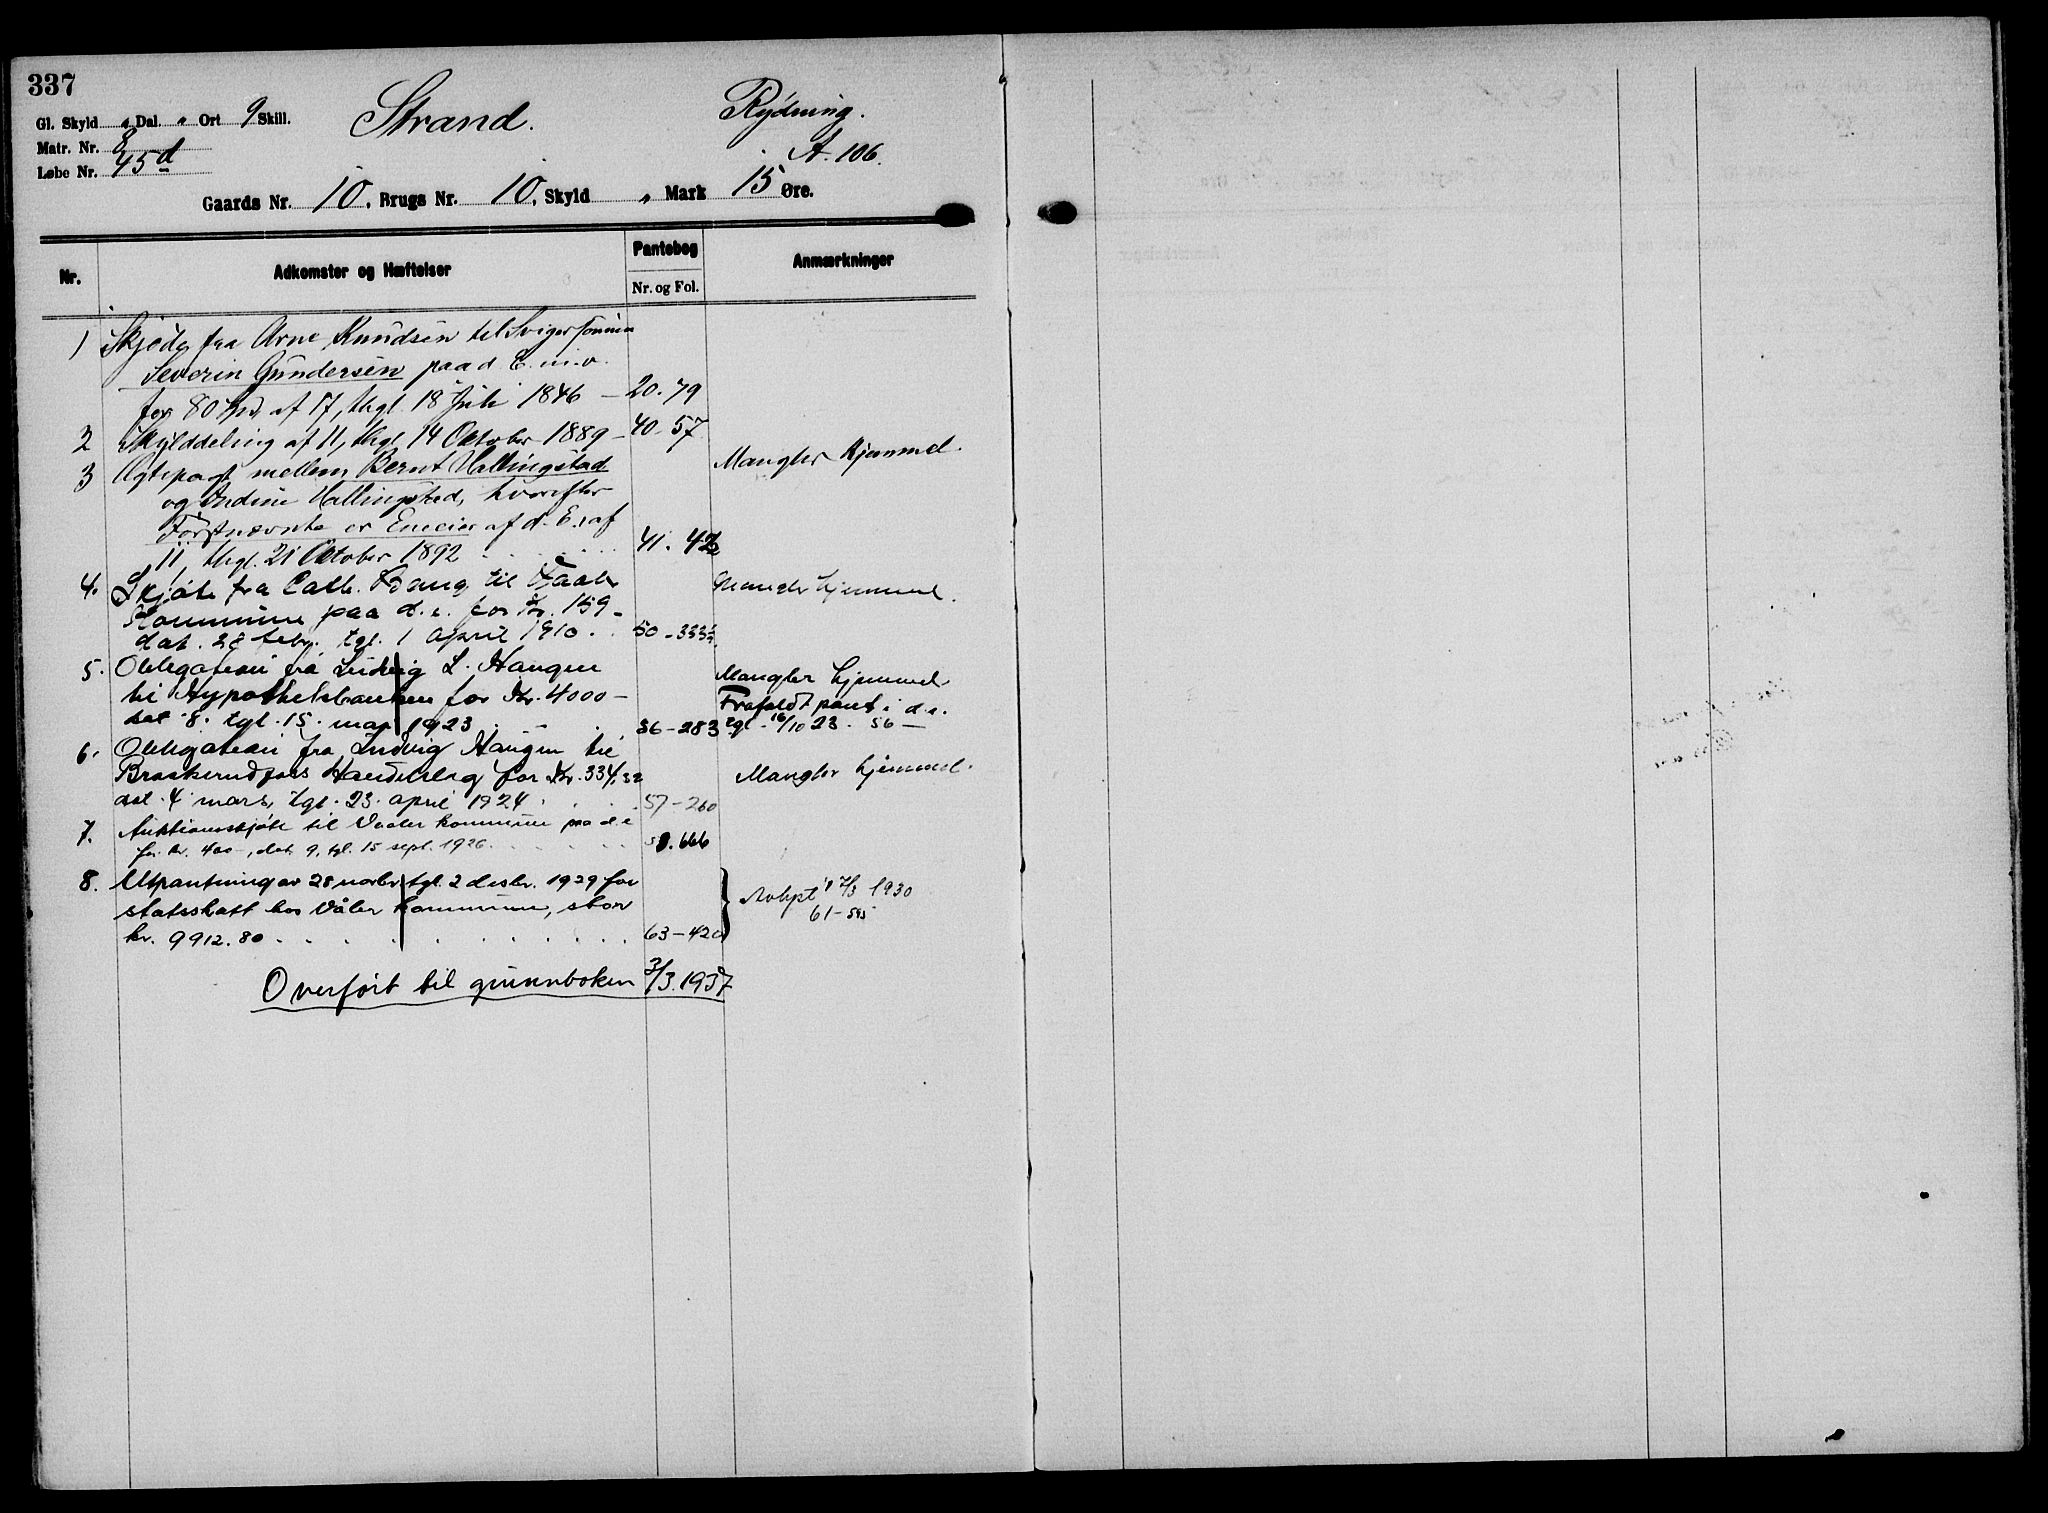 337
Gl. Skyld " Dal. " Ort 9 Skill.
Strand.
Rydning.
Matr. Nr. 8
Løbe Nr. 45 d
A. 106.
Gaards Nr. 10, Brugs Nr. 10, Skyld " Mark 15 Øre.
Nr.
Adkomster og Hæftelser
Pantebog
Nr. og Fol.
Anmærkninger
1 Skjøde fra Arne Knudsen til Svigersønnen
Severin Gundersen paa d. E. m. v.
for 80 Spd. af 17, thgl. 18 Juli 1846 – 20. 79
2 Skylddeling af 11, thgl. 14 Oktober 1889 – 40. 57
3 Ægtepagt mellem Bernt Hallingstad
Mangler Hjemmel.
og Indine Hallingstad, hvorefter
Førstnævnte er Eneeier af d. E. af
11, thgl. 21 Oktober 1892 41. 42
4. Skjøte fra Cath. Bang til Vaaler
Mangler hjemmel.
Kommune paa d. e. for Kr. 159 –
dat. 28 febr. tgl. 1 april 1910. 50 – 333
5. Obligation fra Ludvig L. Haugen
Mangler hjemmel
til Hypothekbanken for Kr. 4000 –
Frafaldt pant i d. e.
dat. 8. tgl. 15. mai 1923 56 – 283
tgl. 16/10 23. 56 –
6. Obligation fra Ludvig Haugen til
Braskerudfoss Handelslag for Kr. 334,32
Mangler hjemmel.
dat. 4 mars, tgl. 23. april 1924 57 – 260
7. Auktionsskjøte til Vaaler kommune paa d. e
for kr. 400 –, dat. 9, tgl. 15 sept. 1926. 59. 666
8. Utpantning av 28 novbr. tgl. 2 desbr. 1929 for
Avlyst 7/3 1930
statsskatt hos Våler kommune, stor
61 – 595
kr. 9912.80 63 – 420
Overført til grunnboken 3/3. 1937